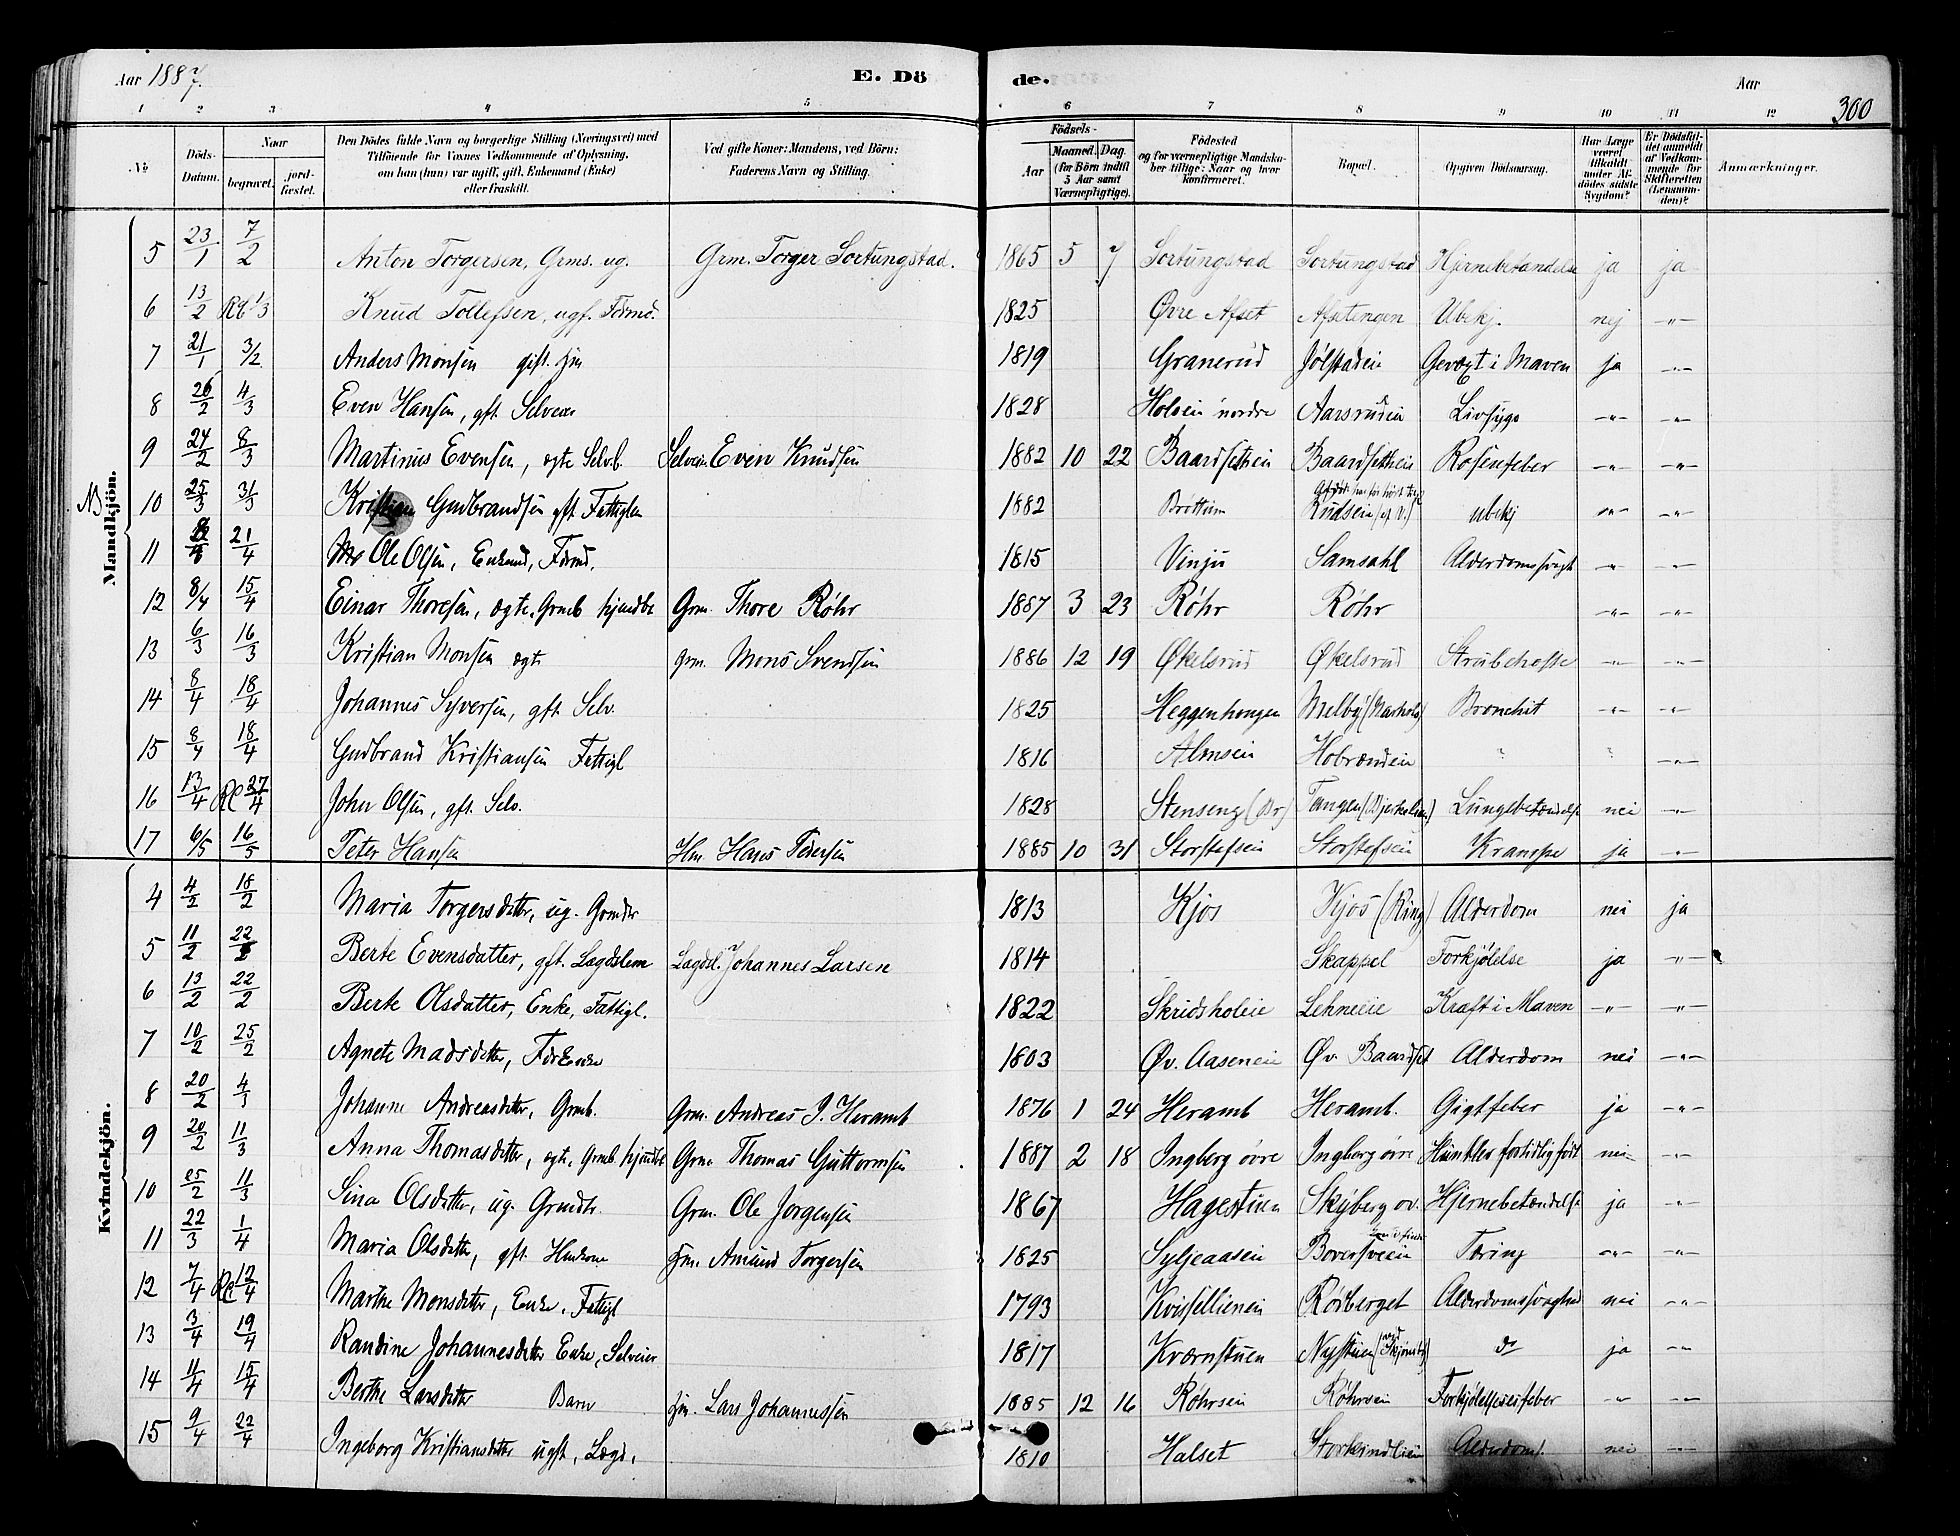 Aar 1887. E. Dö de. Aar 300
1 2 3 4 5 6 7 8 9 10 11 12
No Döds-Datum. Naar begravet. jord-fæstet. Den Dödes fulde Navn og borgerlige Stilling (Næringsvei) med Tilföiende for Voxnes Vedkommende af Oplysning, om han (hun) var ugift, gift, Enkemand (Enke) eller fraskilt. Ved gifte Koner: Mandens, ved Börn: Faderens Navn og Stilling. Födsels- Aar Maaned. Dag. (for Börn indtil 5 Aar samt Værnepligtige). Födested og for værnepligtige Mandskaber tillige: Naar og hvor konfirmeret. Bopæl. Opgiven Dödsaarsag. Har Læge været tilkaldt under Afdödes sidste Sygdom? Er Dödsfaldet anmeldt af Vedkommende for Skifteretten (Lensmanden)? Anmærkninger.
Mandkjön.
5 23/1 7/2 Anton Torgersen, Grms. ug. Grm. Torger Sortungstad. 1865 5 7 Sortungstad Sortungstad Hjernebetændelse ja ja
6 13/2 RC 1/3 Knud Tollefsen, ugf. 1825 Øvre Afset Afsetengen Ubekj. nej -"-
7 21/1 3/2 Anders Monsen gift. 1819 Granerud Jølstadeie Gevæxt i Maven ja -"-
8 26/2 4/3 Even Hansen, gft. Selveier 1828 Holseie nordre Aarsrudeie Livsyge -"- -"-
9 24/2 8/3 Martinus Evensen, ægte Selvb. Selveier Even Knudsen 1882 10 22 Baardsetheie Baardsetheie Rosenfeber -"- -"-
NB 10 25/3 31/3 Kristian Gudbrandsen gft. Fattiglem 1882 Brøttum Rudseie ubekj -"- -"-
11 21/4 Ole Olsen, Enkemd, 1815 Vinju Samsahl Alderdomssvagh -"- -"-
12 8/4 15/4 Einar Thoresen, ægte. Grmb hjemdbt Grm. Thore Røhr 1887 3 23 Røhr Røhr -"- -"-
13 6/3 16/3 Kristian Monsen ægte grm. Mons Svendsen 1886 12 19 Økelsrud Økelsrud Strubehoste -"- -"-
14 8/4 18/4 Johannes Syversen, gft. Selv. 1825 Heggenhougen Melby Bronchit -"- -"-
15 8/4 18/4 Gudbrand Kristiansen Fattigl 1816 Almseie " " -"-
16 13/4 RC 27/4 John Olsen, gft. Selv. 1828 Stenseng (Br) Tangen Lungebetændelse nei -"-
17 6/5 16/5 Peter Hansen Hm. Hans Pedersen 1885 10 31 Storstefseie Storstefseie Krampe ja -"-
Kvindekjön.
4 4/2 18/2 Maria Torgersdatter, ug. Grmdtr 1813 Kjos Kjos (Ring) Alderdom nei ja
5 11/2 22/2 Berte Evensdatter, gft. Lægdslem Lægdsl. Johannes Larsen 1814 Skappel Forkjølelse ja -"-
6 13/2 22/2 Berte Olsdatter, Enke, Fattigl. 1822 Skridsholeie Lehneeie Kræft i Maven -"- -"-
7 10/2 25/2 Agnete Madsdatter, 1803 Øv. Aaseneie Øv. Baardset Alderdom nei -"-
8 20/2 4/3 Johanne Andreasdatter, Grmb. Grm. Andreas J. Heramb 1876 1 24 Heramb Heramb. Gigtfeber ja -"-
9 20/2 11/3 Anna Thomasdatter, ægte. Grmb. hjemdbt Grm. Thomas Guttormsen 1887 2 18 Ingberg øvre Ingberg øvre fortidlig født nei -"-
10 25/2 11/3 Sina Olsdatter, ug. Grmdtr. Grm. Ole Jorgensen 1867 Hagestuen Skyberg øv. Hjernebetændelse ja -"-
11 22/3 1/4 Maria Olsdatter, gft. Huskone Hm. Amund Torgersen 1825 Syljeaaseie Boversveeie Tæring -"- -"-
12 7/4 RC 12/4 Marthe Monsdatter, Enke. Fattigl 1793 Kvisellieneie Rødberget Alderdomssvaghed nei -"-
13 3/4 19/4 Randine Johannesdatter Enke, Selveier 1817 Kværnstuen Nystuen do ja -"-
14 11/4 15/4 Berthe Larsdatter Barn Hm. Lars Johannessen 1885 12 16 Røhrseie Røhrseie Forkjølelsesfeber -"- -"-
15 9/4 22/4 Ingeborg Kristiansdatter ugft, Lægd. 1810 Halset Alderdom. nei -"-